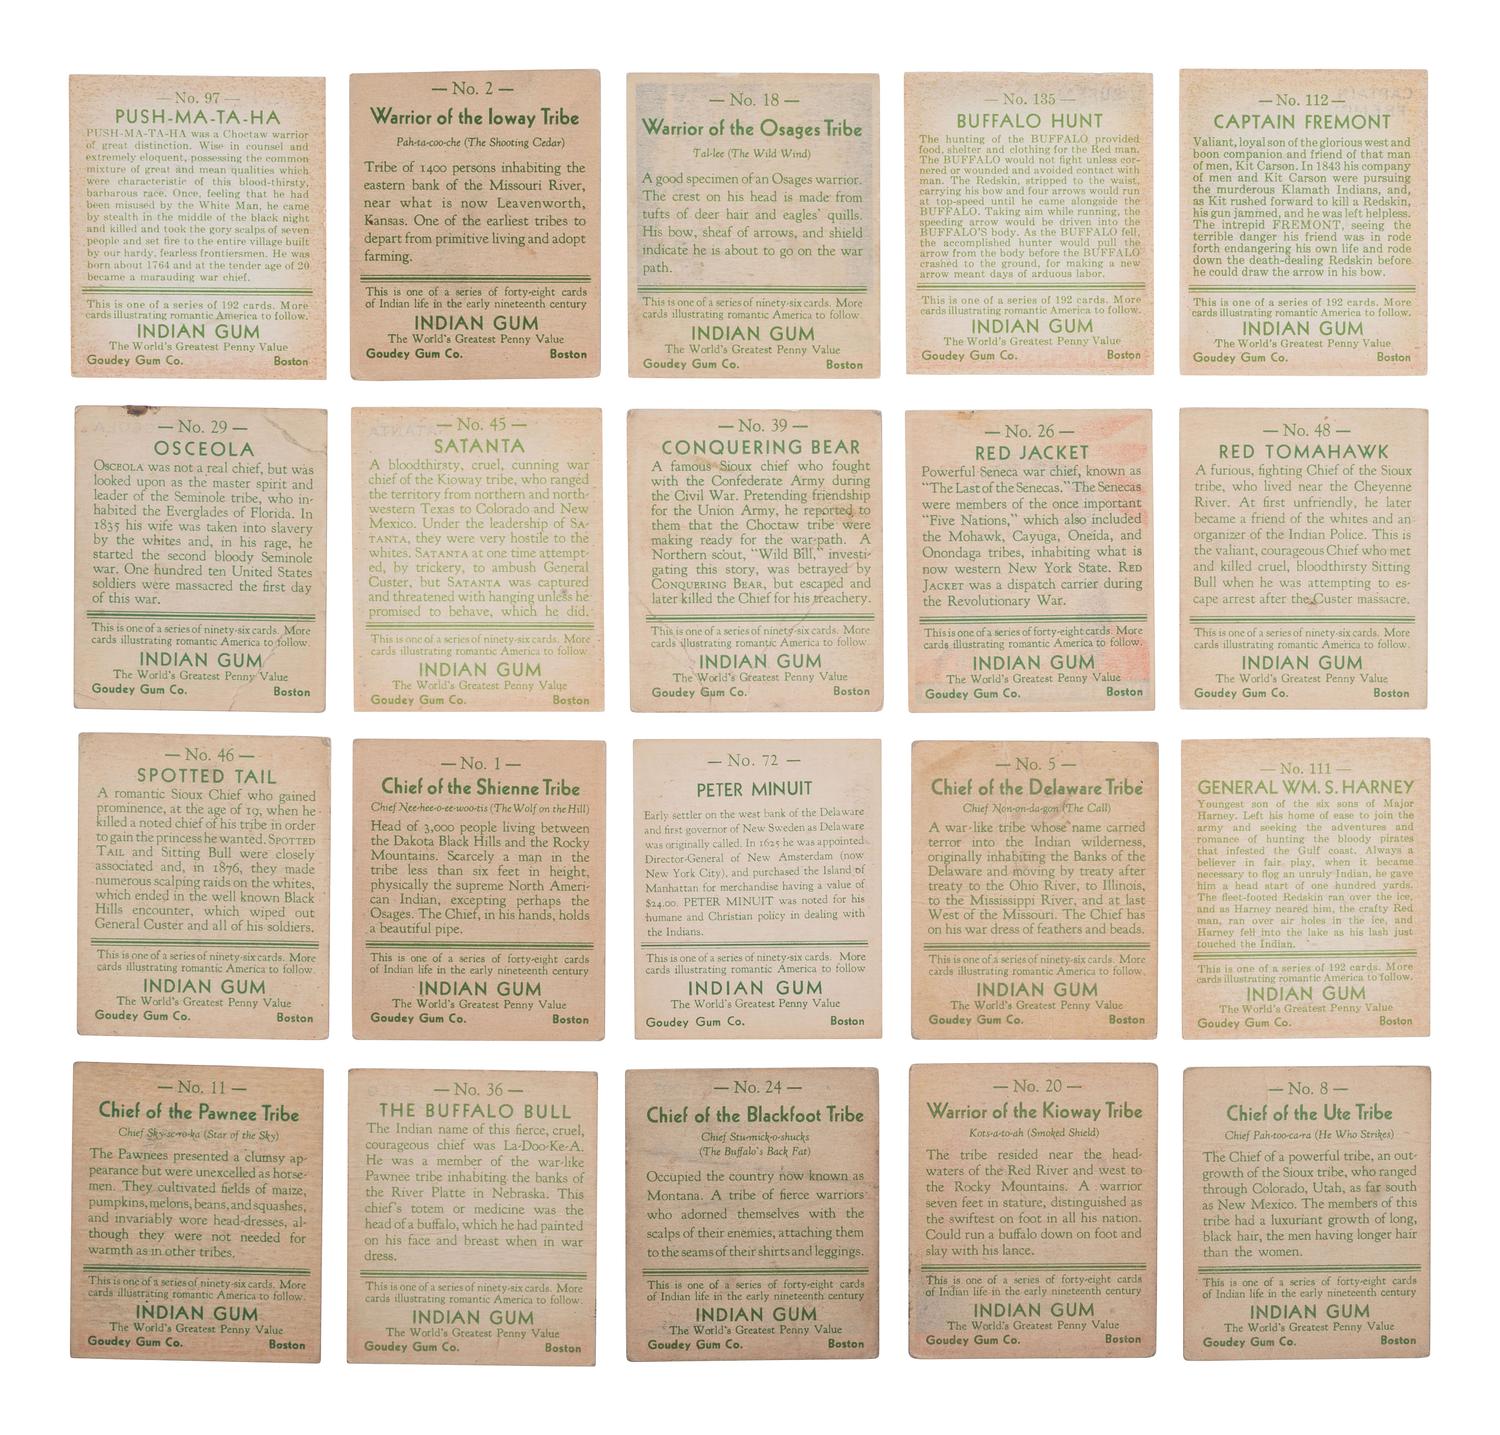 — No. 97 —
PUSH-MA-TA-HA
PUSH-MA-TA-HA was a Choctaw warrior
of great distinction. Wise in counsel and
extremely eloquent, possessing the common
mixture of great and mean qualities which
were characteristic of this blood-thirsty,
barbarous race. Once, feeling that he had
been misused by the White Man, he came
by stealth in the middle of the black night
and killed and took the gory scalps of seven
people and set fire to the entire village built
by our hardy, fearless frontiersmen. He was
born about 1764 and at the tender age of 20
became a marauding war chief.
This is one of a series of 192 cards. More
cards illustrating romantic America to follow.
INDIAN GUM
The World's Greatest Penny Value
Goudey Gum Co. Boston
— No. 2 —
Warrior of the Ioway Tribe
Pah-ta-coo-che (The Shooting Cedar)
Tribe of 1400 persons inhabiting the
eastern bank of the Missouri River,
near what is now Leavenworth,
Kansas. One of the earliest tribes to
depart from primitive living and adopt
farming.
This is one of a series of forty-eight cards
of Indian life in the early nineteenth century
INDIAN GUM
The World's Greatest Penny Value
Goudey Gum Co. Boston
— No. 18 —
Warrior of the Osages Tribe
Tal-lee (The Wild Wind)
A good specimen of an Osages warrior.
The crest on his head is made from
tufts of deer hair and eagles' quills.
His bow, sheaf of arrows, and shield
indicate he is about to go on the war
path.
This is one of a series of ninety-six cards. More
cards illustrating romantic America to follow.
INDIAN GUM
The World's Greatest Penny Value
Goudey Gum Co. Boston
— No. 135 —
BUFFALO HUNT
The hunting of the BUFFALO provided
food, shelter and clothing for the Red man.
The BUFFALO would not fight unless cor-
nered or wounded and avoided contact with
man. The Redskin, stripped to the waist,
carrying his bow and four arrows would run
at top-speed until he came alongside the
BUFFALO. Taking aim while running, the
speeding arrow would be driven into the
BUFFALO'S body. As the BUFFALO fell,
the accomplished hunter would pull the
arrow from the body before the BUFFALO
crashed to the ground, for making a new
arrow meant days of arduous labor.
This is one of a series of 192 cards. More
cards illustrating romantic America to follow.
INDIAN GUM
The World's Greatest Penny Value
Goudey Gum Co. Boston
— No. 112 —
CAPTAIN FREMONT
Valiant, loyal son of the glorious west and
boon companion and friend of that man
of men, Kit Carson. In 1843 his company
of men and Kit Carson were pursuing
the murderous Klamath Indians, and,
as Kit rushed forward to kill a Redskin,
his gun jammed, and he was left helpless.
The intrepid FREMONT, seeing the
terrible danger his friend was in rode
forth endangering his own life and rode
down the death-dealing Redskin before
he could draw the arrow in his bow.
This is one of a series of 192 cards. More
cards illustrating romantic America to follow.
INDIAN GUM
The World's Greatest Penny Value
Goudey Gum Co. Boston
— No. 29 —
OSCEOLA
OSCEOLA was not a real chief, but was
looked upon as the master spirit and
leader of the Seminole tribe, who in-
habited the Everglades of Florida. In
1835 his wife was taken into slavery
by the whites and, in his rage, he
started the second bloody Seminole
war. One hundred ten United States
soldiers were massacred the first day
of this war.
This is one of a series of ninety-six cards. More
cards illustrating romantic America to follow.
INDIAN GUM
The World's Greatest Penny Value
Goudey Gum Co. Boston
— No. 45 —
SATANTA
A bloodthirsty, cruel, cunning war
chief of the Kioway tribe, who ranged
the territory from northern and north-
western Texas to Colorado and New
Mexico. Under the leadership of SA-
TANTA, they were very hostile to the
whites. SATANTA at one time attempt-
ed, by trickery, to ambush General
Custer, but SATANTA was captured
and threatened with hanging unless he
promised to behave, which he did.
This is one of a series of ninety-six cards. More
cards illustrating romantic America to follow.
INDIAN GUM
The World's Greatest Penny Value
Goudey Gum Co. Boston
— No. 39 —
CONQUERING BEAR
A famous Sioux chief who fought
with the Confederate Army during
the Civil War. Pretending friendship
for the Union Army, he reported to
them that the Choctaw tribe were
making ready for the war-path. A
Northern scout, "Wild Bill," investi-
gating this story, was betrayed by
CONQUERING BEAR, but escaped and
later killed the Chief for his treachery.
This is one of a series of ninety-six cards. More
cards illustrating romantic America to follow.
INDIAN GUM
The World's Greatest Penny Value
Goudey Gum Co. Boston
— No. 26 —
RED JACKET
Powerful Seneca war chief, known as
"The Last of the Senecas." The Senecas
were members of the once important
"Five Nations," which also included
the Mohawk, Cayuga, Oneida, and
Onondaga tribes, inhabiting what is
now western New York State. RED
JACKET was a dispatch carrier during
the Revolutionary War.
This is one of a series of forty-eight cards. More
cards illustrating romantic America to follow.
INDIAN GUM
The World's Greatest Penny Value
Goudey Gum Co. Boston
— No. 48 —
RED TOMAHAWK
A furious, fighting Chief of the Sioux
tribe, who lived near the Cheyenne
River. At first unfriendly, he later
became a friend of the whites and an
organizer of the Indian Police. This is
the valiant, courageous Chief who met
and killed cruel, bloodthirsty Sitting
Bull when he was attempting to es-
cape arrest after the Custer massacre.
This is one of a series of ninety-six cards. More
cards illustrating romantic America to follow.
INDIAN GUM
The World's Greatest Penny Value
Goudey Gum Co. Boston
— No. 46 —
SPOTTED TAIL
A romantic Sioux Chief who gained
prominence, at the age of 19, when he
killed a noted chief of his tribe in order
to gain the princess he wanted. SPOTTED
TAIL and Sitting Bull were closely
associated and, in 1876, they made
numerous scalping raids on the whites,
which ended in the well known Black
Hills encounter, which wiped out
General Custer and all of his soldiers.
This is one of a series of ninety-six cards. More
cards illustrating romantic America to follow.
INDIAN GUM
The World's Greatest Penny Value
Goudey Gum Co. Boston
— No. 1 —
Chief of the Shienne Tribe
Chief Nee-hee-o-ee-woo-tis (The Wolf on the Hill)
Head of 3,000 people living between
the Dakota Black Hills and the Rocky
Mountains. Scarcely a man in the
tribe less than six feet in height,
physically the supreme North Ameri-
can Indian, excepting perhaps the
Osages. The Chief, in his hands, holds
a beautiful pipe.
This is one of a series of forty-eight cards
of Indian life in the early nineteenth century
INDIAN GUM
The World's Greatest Penny Value
Goudey Gum Co. Boston
— No. 72 —
PETER MINUIT
Early settler on the west bank of the Delaware
and first governor of New Sweden as Delaware
was originally called. In 1625 he was appointed
Director-General of New Amsterdam (now
New York City), and purchased the Island of
Manhattan for merchandise having a value of
$24.00. PETER MINUIT was noted for his
humane and Christian policy in dealing with
the Indians.
This is one of a series of ninety-six cards. More
cards illustrating romantic America to follow
INDIAN GUM
The World's Greatest Penny Value
Goudey Gum Co. Boston
— No. 5 —
Chief of the Delaware Tribe
Chief Non-on-da-gon (The Call)
A war-like tribe whose name carried
terror into the Indian wilderness,
originally inhabiting the Banks of the
Delaware and moving by treaty after
treaty to the Ohio River, to Illinois,
to the Mississippi River, and at last
West of the Missouri. The Chief has
on his war dress of feathers and beads.
This is one of a series of ninety-six cards. More
cards illustrating romantic America to follow.
INDIAN GUM
The World's Greatest Penny Value
Goudey Gum Co. Boston
— No. 111 —
GENERAL WM. S. HARNEY
Youngest son of the six sons of Major
Harney. Left his home of ease to join the
army and seeking the adventures and
romance of hunting the bloody pirates
that infested the Gulf coast. Always a
believer in fair play, when it became
necessary to flog an unruly Indian, he gave
him a head start of one hundred yards.
The fleet-footed Redskin ran over the ice,
and as Harney neared him, the crafty Red
man, ran over air holes in the ice, and
Harney fell into the lake as his lash just
touched the Indian.
This is one of a series of 192 cards. More
cards illustrating romantic America to follow.
INDIAN GUM
The World's Greatest Penny Value
Goudey Gum Co. Boston
— No. 11 —
Chief of the Pawnee Tribe
Chief Sky-se-ro-ka (Star of the Sky)
The Pawnees presented a clumsy ap-
pearance but were unexcelled as horse-
men. They cultivated fields of maize,
pumpkins, melons, beans, and squashes,
and invariably wore head-dresses, al-
though they were not needed for
warmth as in other tribes.
This is one of a series of ninety-six cards. More
cards illustrating romantic America to follow.
INDIAN GUM
The World's Greatest Penny Value
Goudey Gum Co. Boston
— No. 36 —
THE BUFFALO BULL
The Indian name of this fierce, cruel,
courageous chief was La-Doo-Ke-A.
He was a member of the war-like
Pawnee tribe inhabiting the banks of
the River Platte in Nebraska. This
chief's totem or medicine was the
head of a buffalo, which he had painted
on his face and breast when in war
dress.
This is one of a series of ninety-six cards. More
cards illustrating romantic America to follow.
INDIAN GUM
The World's Greatest Penny Value
Goudey Gum Co. Boston
— No. 24 —
Chief of the Blackfoot Tribe
Chief Stu-mick-o-shucks
(The Buffalo's Back Fat)
Occupied the country now known as
Montana. A tribe of fierce warriors
who adorned themselves with the
scalps of their enemies, attaching them
to the seams of their shirts and leggings.
This is one of a series of forty-eight cards
of Indian life in the early nineteenth century
INDIAN GUM
The World's Greatest Penny Value
Goudey Gum Co. Boston
— No. 20 —
Warrior of the Kioway Tribe
Kots-a-to-ah (Smoked Shield)
The tribe resided near the head-
waters of the Red River and west to
the Rocky Mountains. A warrior
seven feet in stature, distinguished as
the swiftest on foot in all his nation.
Could run a buffalo down on foot and
slay with his lance.
This is one of a series of forty-eight cards
of Indian life in the early nineteenth century
INDIAN GUM
The World's Greatest Penny Value
Goudey Gum Co. Boston
— No. 8 —
Chief of the Ute Tribe
Chief Pah-too-ca-ra (He Who Strikes)
The Chief of a powerful tribe, an out-
growth of the Sioux tribe, who ranged
through Colorado, Utah, as far south
as New Mexico. The members of this
tribe had a luxuriant growth of long,
black hair, the men having longer hair
than the women.
This is one of a series of forty-eight cards
of Indian life in the early nineteenth century
INDIAN GUM
The World's Greatest Penny Value
Goudey Gum Co. Boston